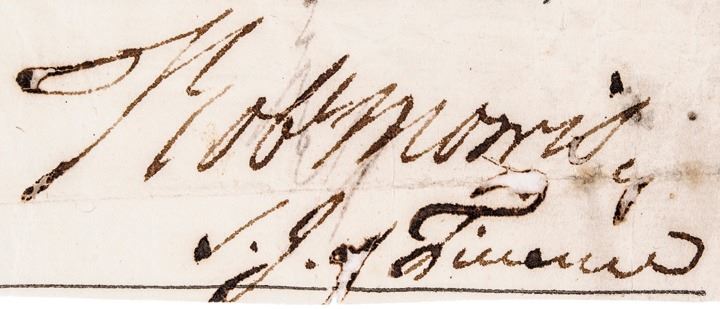 Robt Morris
S. I. of Finance